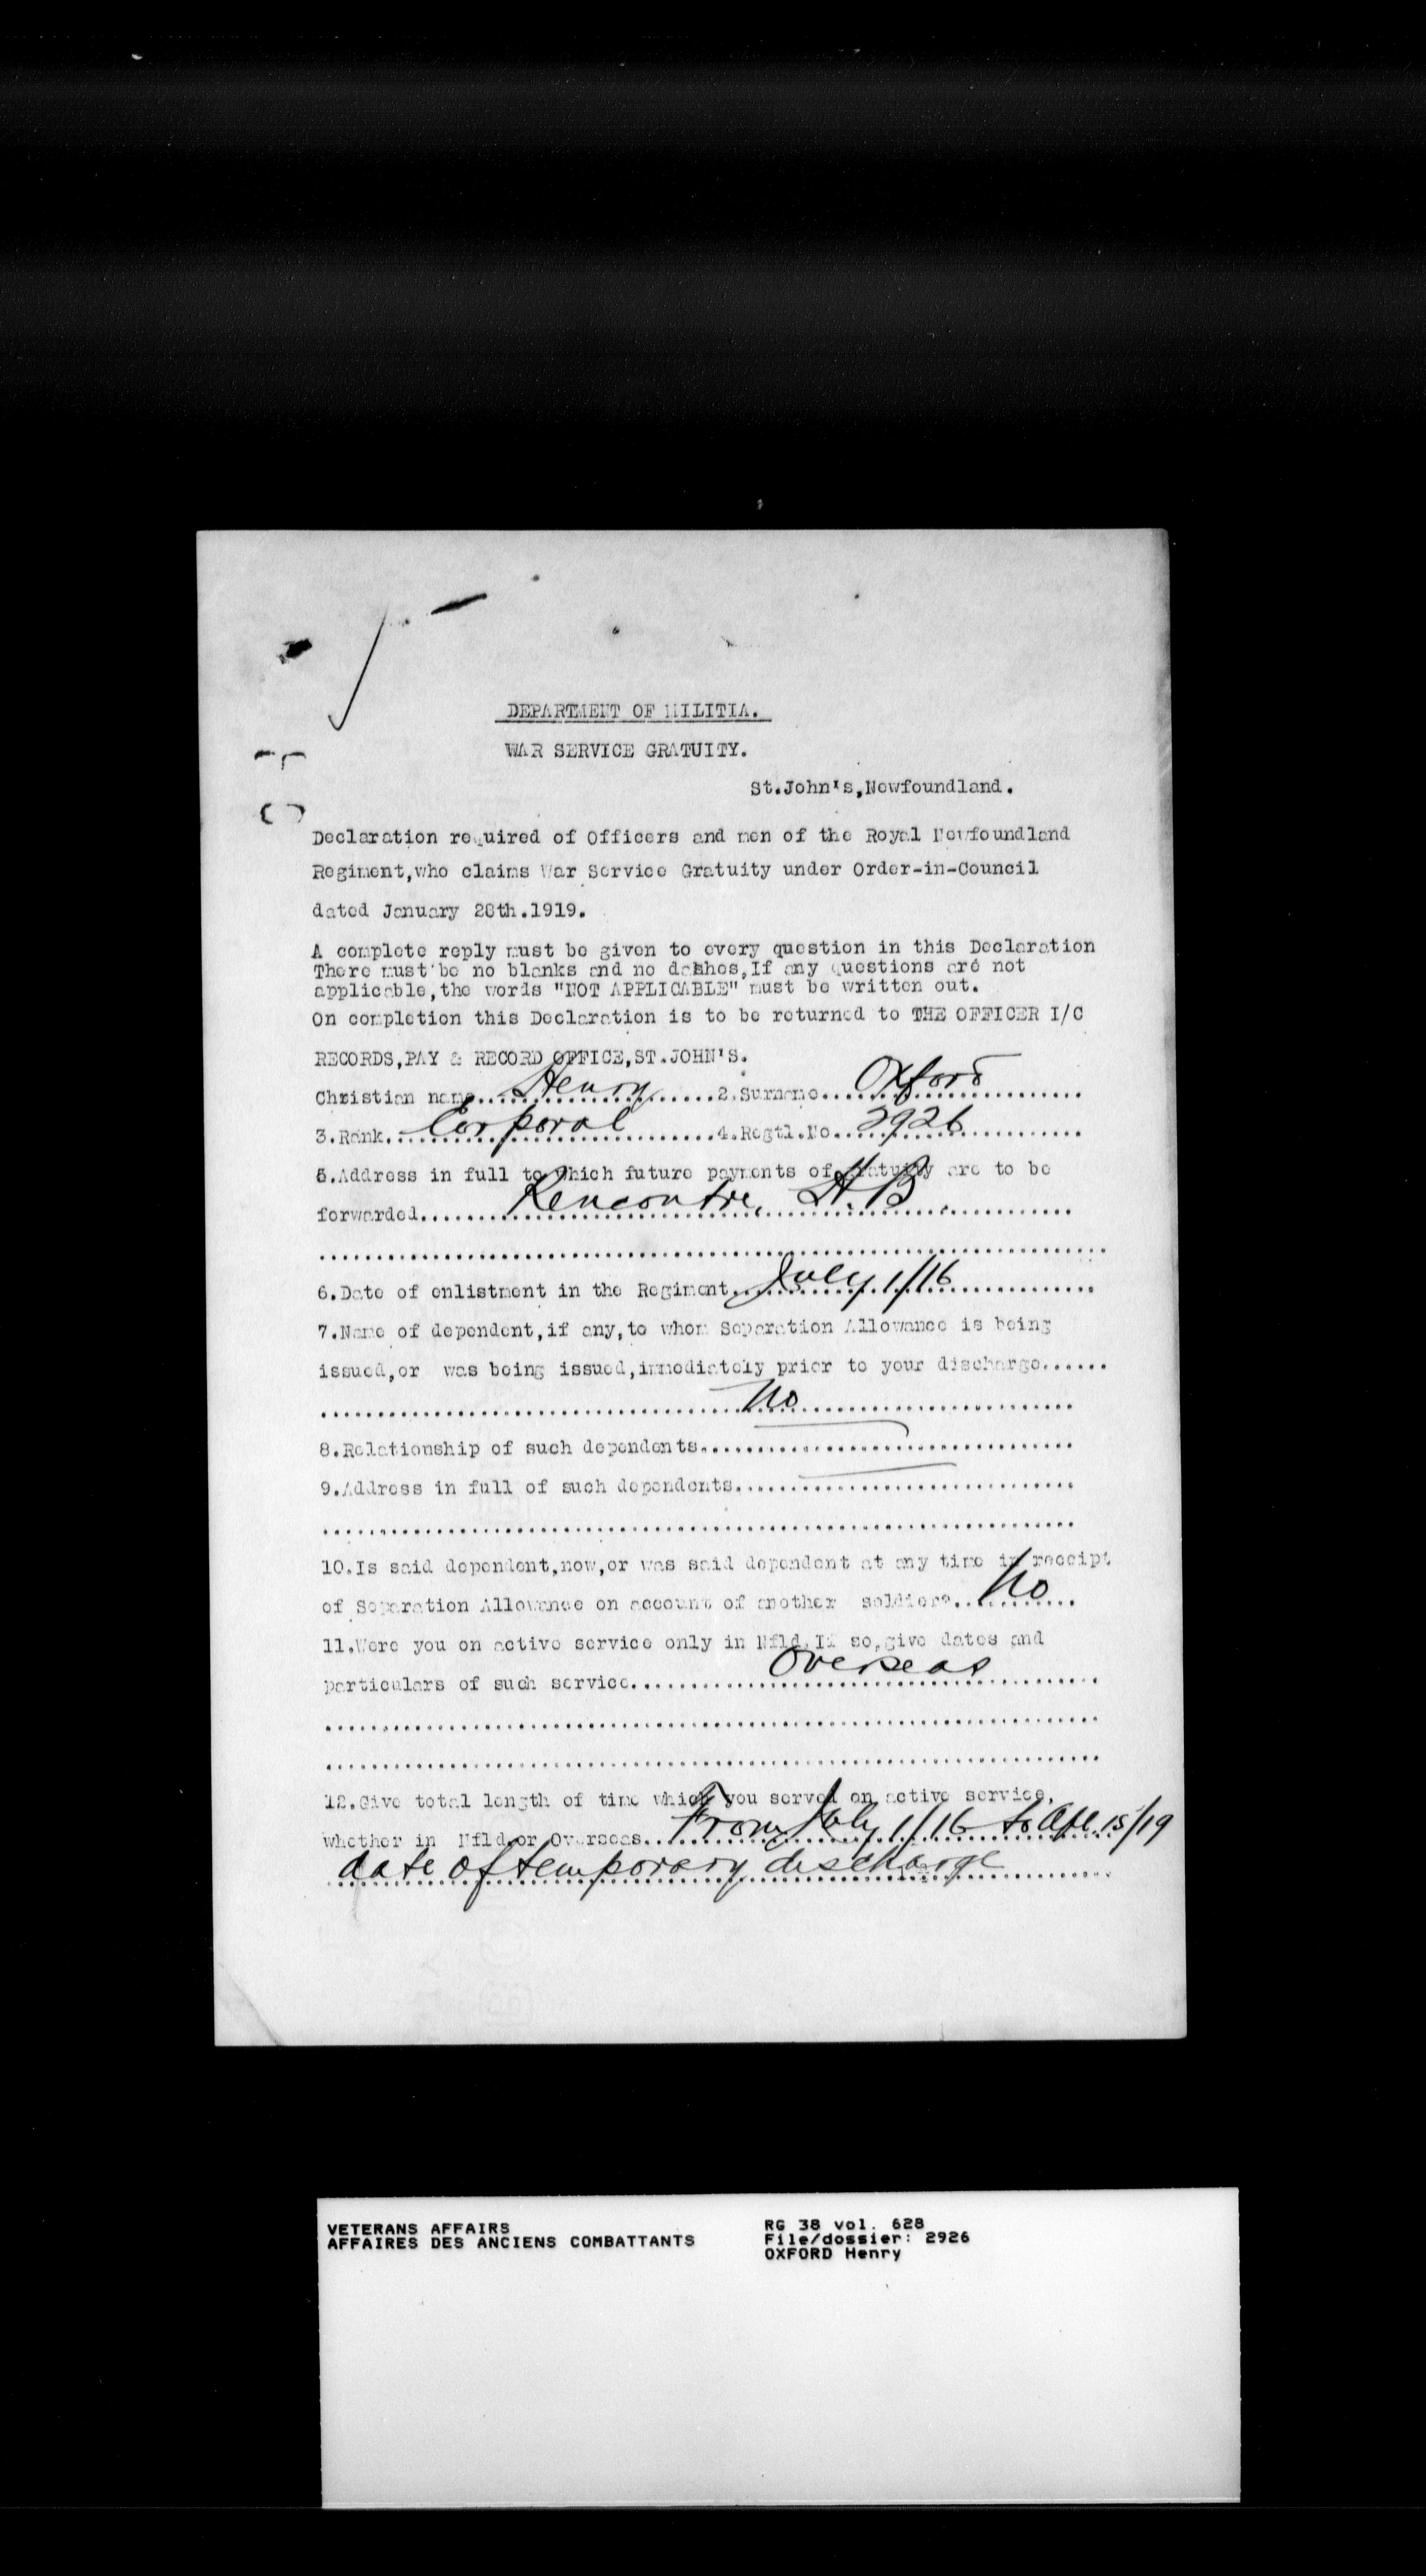 DEPARTMENT OF MILITIA.
WAR SERVICE GRATUITY.
St.John's,Newfoundland.
Declaration required of Officers and men of the Royal Newfoundland
Regiment,who claims War Service Gratuity under Order-in-Council
dated January 28th.1919.
A complete reply must be given to every question in this Declaration
There must be no blanks and no dashes,If any questions are not
applicable,the words "NOT APPLICABLE" must be written out.
On completion this Declaration is to be returned to THE OFFICER I/C
RECORDS,PAY & RECORD OFFICE,ST.JOHN'S.
Christian name....Henry....2.Surname....Oxford....
3.Rank....Corporal....4.Regtl.No....2926....
5.Address in full to which future payments of gratuity are to be
forwarded....Rencontre, H.B....
6.Date of enlistment in the Regiment....July 1/16....
7.Name of dependent,if any,to whom Separation Allowance is being
issued,or was being issued,immediately prior to your discharge......
....No....
8.Relationship of such dependents....
9.Address in full of such dependents....
10.Is said dependent,now,or was said dependent at any time in receipt
of Separation Allowance on account of another soldier?....No....
11.Were you on active service only in Nfld.If so,give dates and
particulars of such service....Overseas....
12.Give total length of time which you served on active service,
whether in Nfld.or Overseas....From July 1/16 to Apl. 15/19
date of temporary discharge
VETERANS AFFAIRS
AFFAIRES DES ANCIENS COMBATTANTS
RG 38 vol. 628
File/dossier: 2926
OXFORD Henry